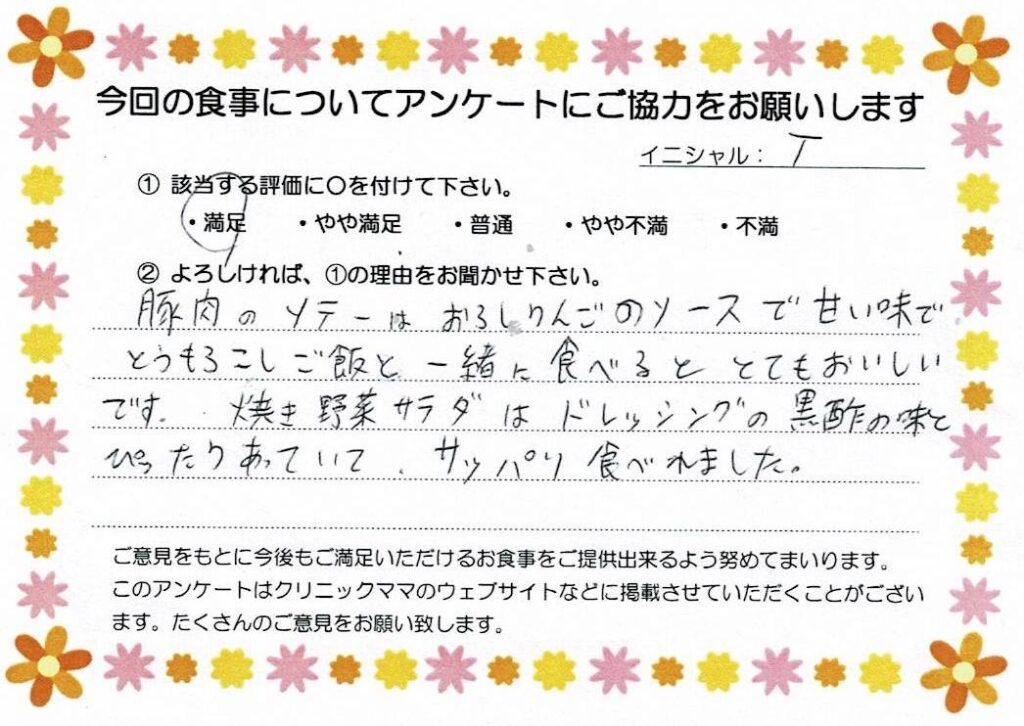 今回の食事についてアンケートにご協力をお願いします
イニシャル： T
① 該当する評価に〇を付けて下さい。
・満足 ・やや満足 ・普通 ・やや不満 ・不満
② よろしければ、①の理由をお聞かせ下さい。
豚肉のソテーはおろしりんごのソースで甘い味で
とうもろこしご飯と一緒に食べるととてもおいしい
です。焼き野菜サラダはドレッシングの黒酢の味と
ぴったりあっていて、サッパリ食べれました。
ご意見をもとに今後もご満足いただけるお食事をご提供出来るよう努めてまいります。
このアンケートはクリニックママのウェブサイトなどに掲載させていただくことがござい
ます。たくさんのご意見をお願い致します。